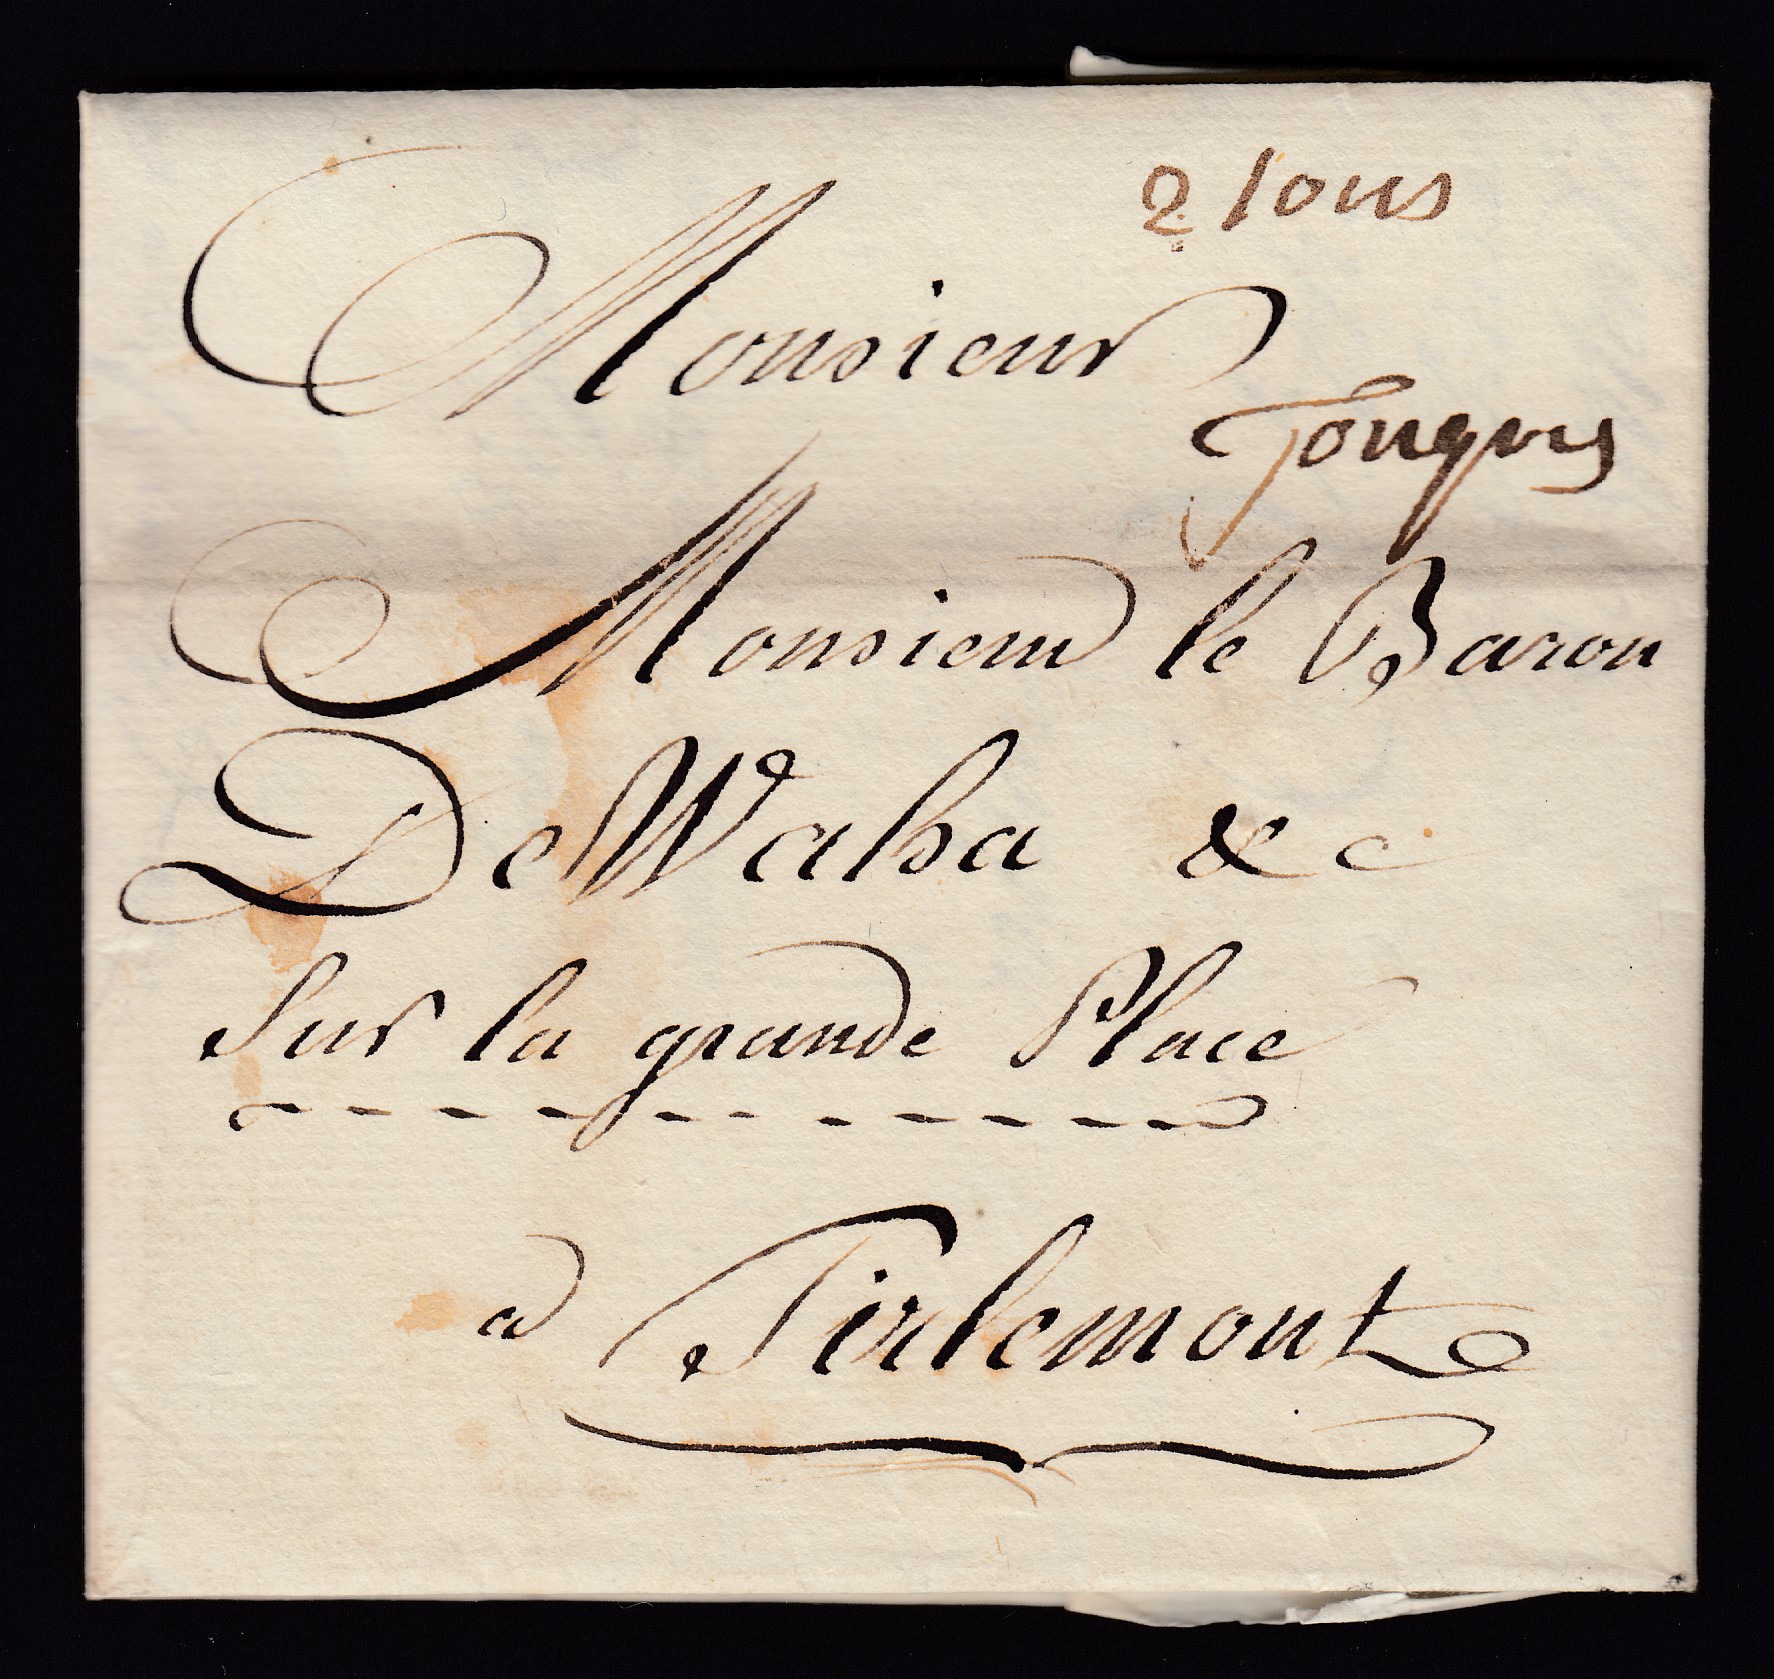 2 sous
Monsieur
Tongres
Monsieur le Baron
De Waha &c
Sur la grande Place
a Tirlemont